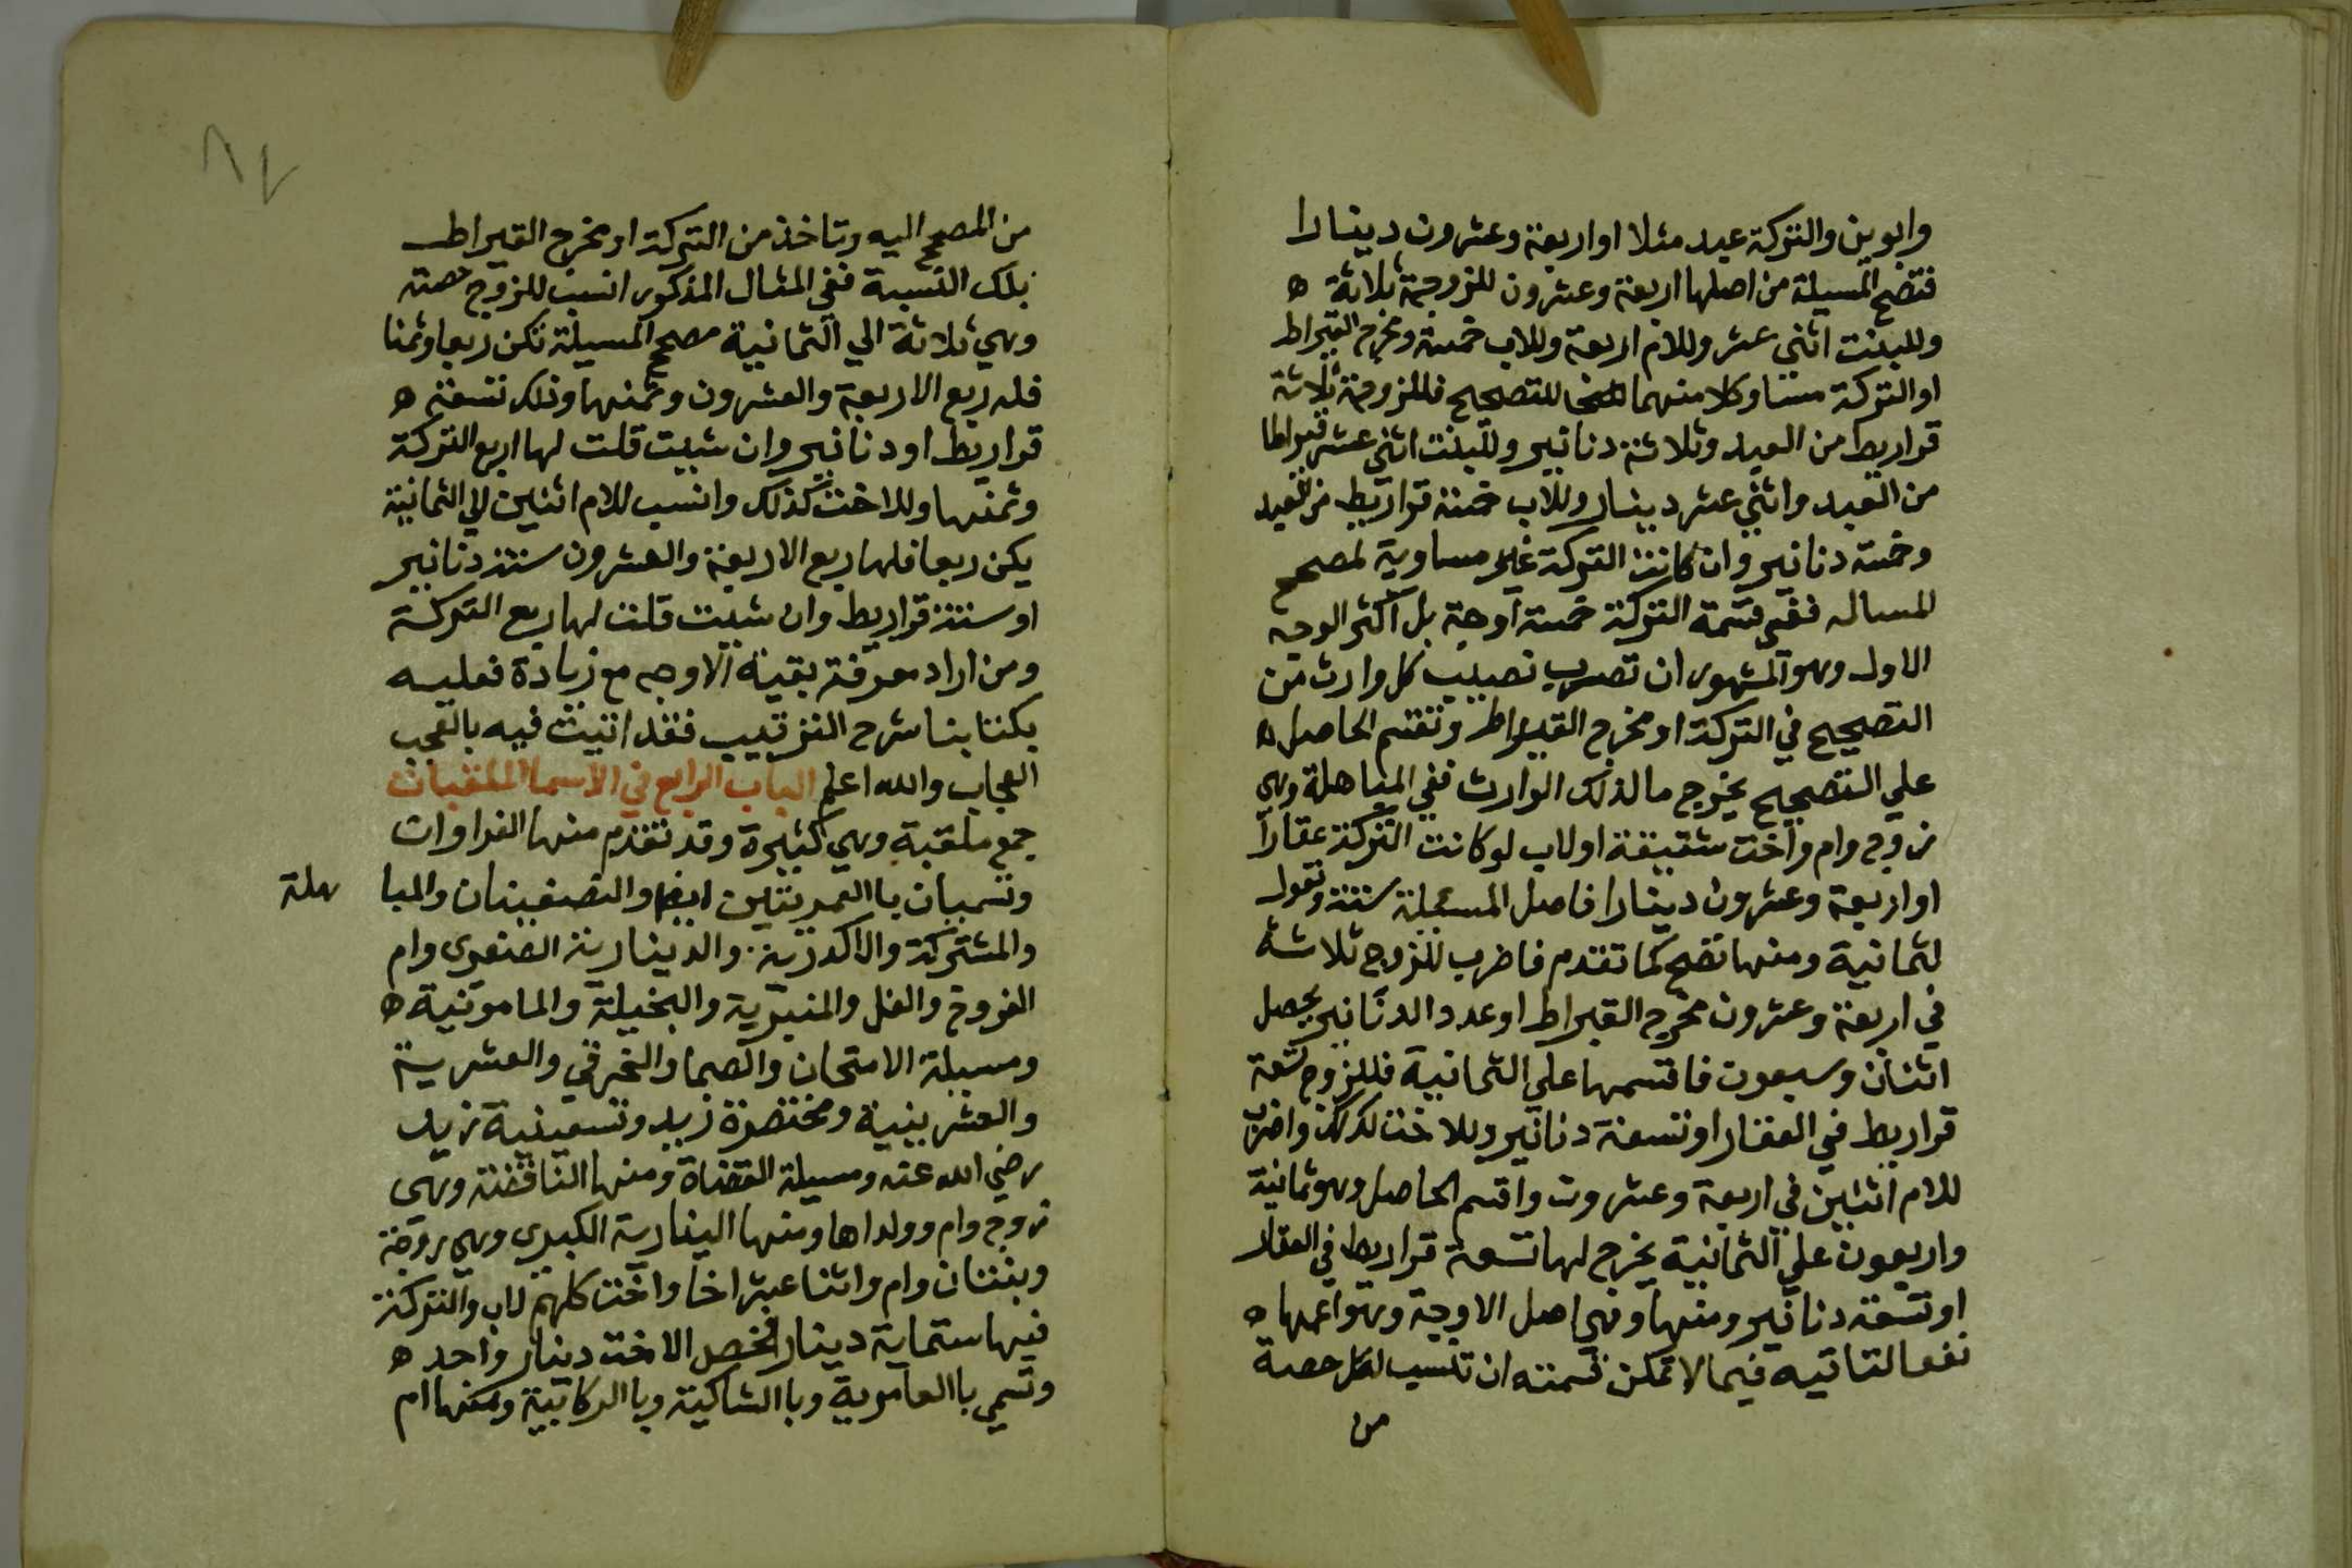 وابوين والتركة عبد مثلا او اربعة وعشرون دينارا
فتصح المسيلة من اصلها اربعة وعشرون للزوجة ثلاثة ه
وللبنت اثني عشر وللام اربعة وللاب خمسة ومخرج القيراط
او التركة مساو كلا منهما للتصحيح فللزوجة ثلاثة
قراريط من العبد وثلاثة دنانير وللبنت اثني عشر قيراطا
من العبد واثني عشر دينار وللاب خمسة قراريط من العبد
وخمسة دنانير وان كانت التركة غير مساوية لمصحح
المساله ففي قسمة التركة خمسة اوجة بل اكثر الوجه
الاول وهو المشهور ان تضرب نصيب كل وارث من
التصحيح في التركة او مخرج القيراط وتقسم الحاصل ه
علي التصحيح يخرج ما لذلك الوارث ففي المباهلة وهي
زوج وام واخت شقيقة او لاب لو كانت التركة عقارا
او اربعة وعشرون دينارا فاصل المسيلة ستة وتعول
لثمانية ومنها تصح كما تقدم فاضرب للزوج ثلاثة
في اربعة وعشرون مخرج القيراط او عدد الدنانير يحصل
اثنان وسبعون فاقسمها علي الثمانية فللزوج تسعة
قراريط في العقار او تسعة دنانير وللاخت كذلك واضرب
للام اثنين في اربعة وعشرون واقسم الحاصل وهو ثمانية
واربعون علي الثمانية يخرج لها تسعة قراريط في العقار
او تسعة دنانير ومنها وهي اصل الاوجة وهو اعمها ه
نفعا لتاتيه فيما لا تمكن قسمته ان تنسب لكل حصة
من
من المصحح اليه وتاخذ من التركة او مخرج القيراط
بلك النسبة ففي المثال المذكور انسب للزوج حصته
وهي ثلاثة الي الثمانية مصحح المسيلة تكن ربعا وثمنا
فله ربع الاربعة والعشرون وثمنها وذلك تسعة ه
قراريط او دنانير وان شيت قلت لها اربع التركة
وثمنها وللاخت كذلك وانسب للام اثنين الي الثمانية
يكن ربعا فلها ربع الاربعة والعشرون ستة دنانير
او ستة قراريط وان شيت قلت لها ربع التركة
ومن اراد معرفة بقية الاوجه مع زيادة فعليه
بكتابنا شرح الترتيب فقد اتيت فيه بالعجب
العجاب والله اعلم الباب الرابع في الاسما الملقبات
جمع ملقبة وهي كثيرة وقد تقدم منها الغراوات
وتسميان باالعمريتين ايضا والنصفيتان والمبا هلة
والمشتركة والاكدرية والدينارية الصغرى وام
الفروخ والغل والمنبرية والبخيلة والمامونية ه
ومسيلة الامتحان والصما والخرقي والعشرية
والعشرينية ومختصرة زيد وتسعينية زيد
رضي الله عنه ومسيلة القضاة ومنها الناقضة وهي
زوج وام وولداها ومنها الينارية الكبرى وهي زوجة
وبنتان وام واثنا عشر اخا واخت كلهم لاب والتركة
فيها ستماية دينار فخص الاخت دينار واحد ه
وتسمي باالعامرية وباالشاكية وباالركابية ومنها ام